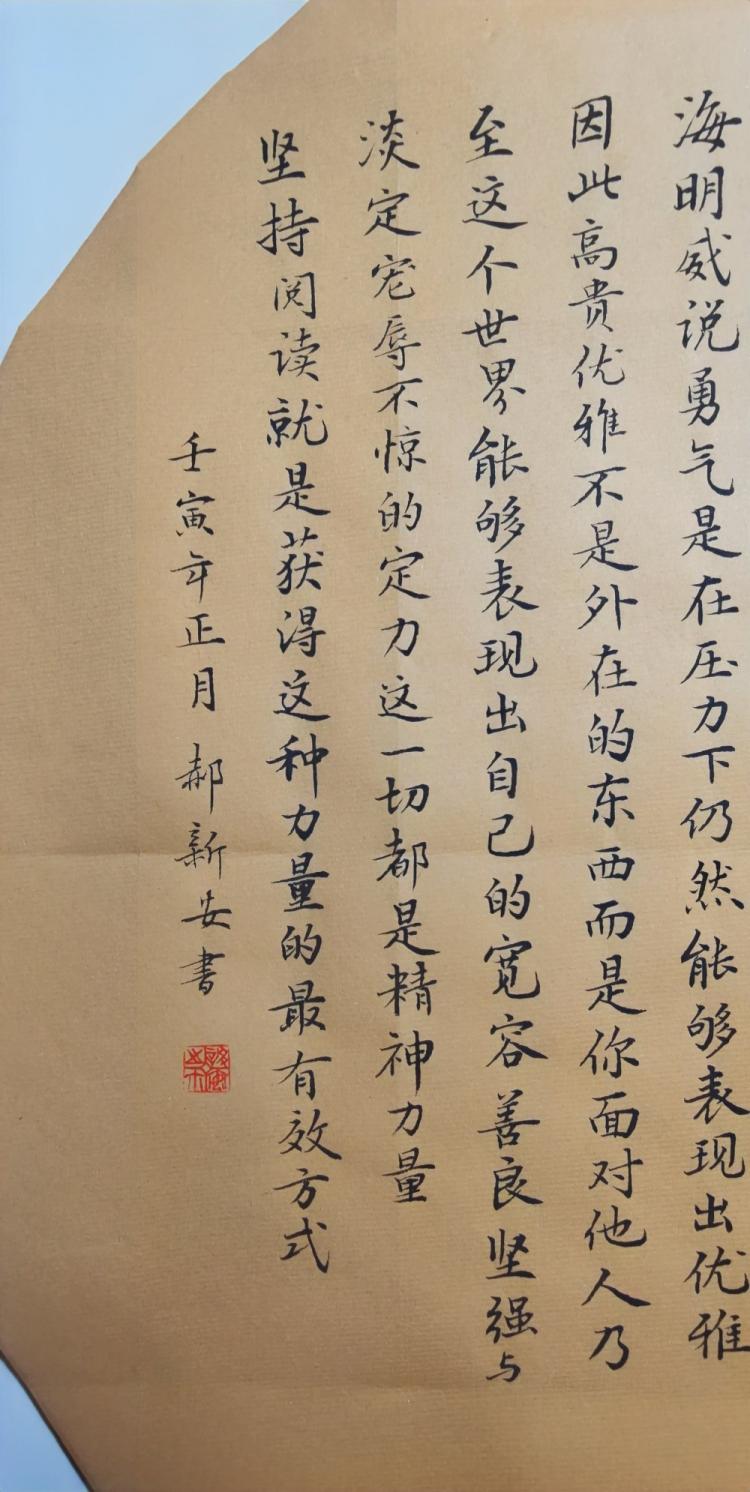 海明威说勇气是在压力下仍然能够表现出优雅
因此高贵优雅不是外在的东西而是你面对他人乃
至这个世界能够表现出自己的宽容善良坚强与
淡定宠辱不惊的定力这一切都是精神力量
坚持阅读就是获得这种力量的最有效方式
壬寅年正月 郝新安书